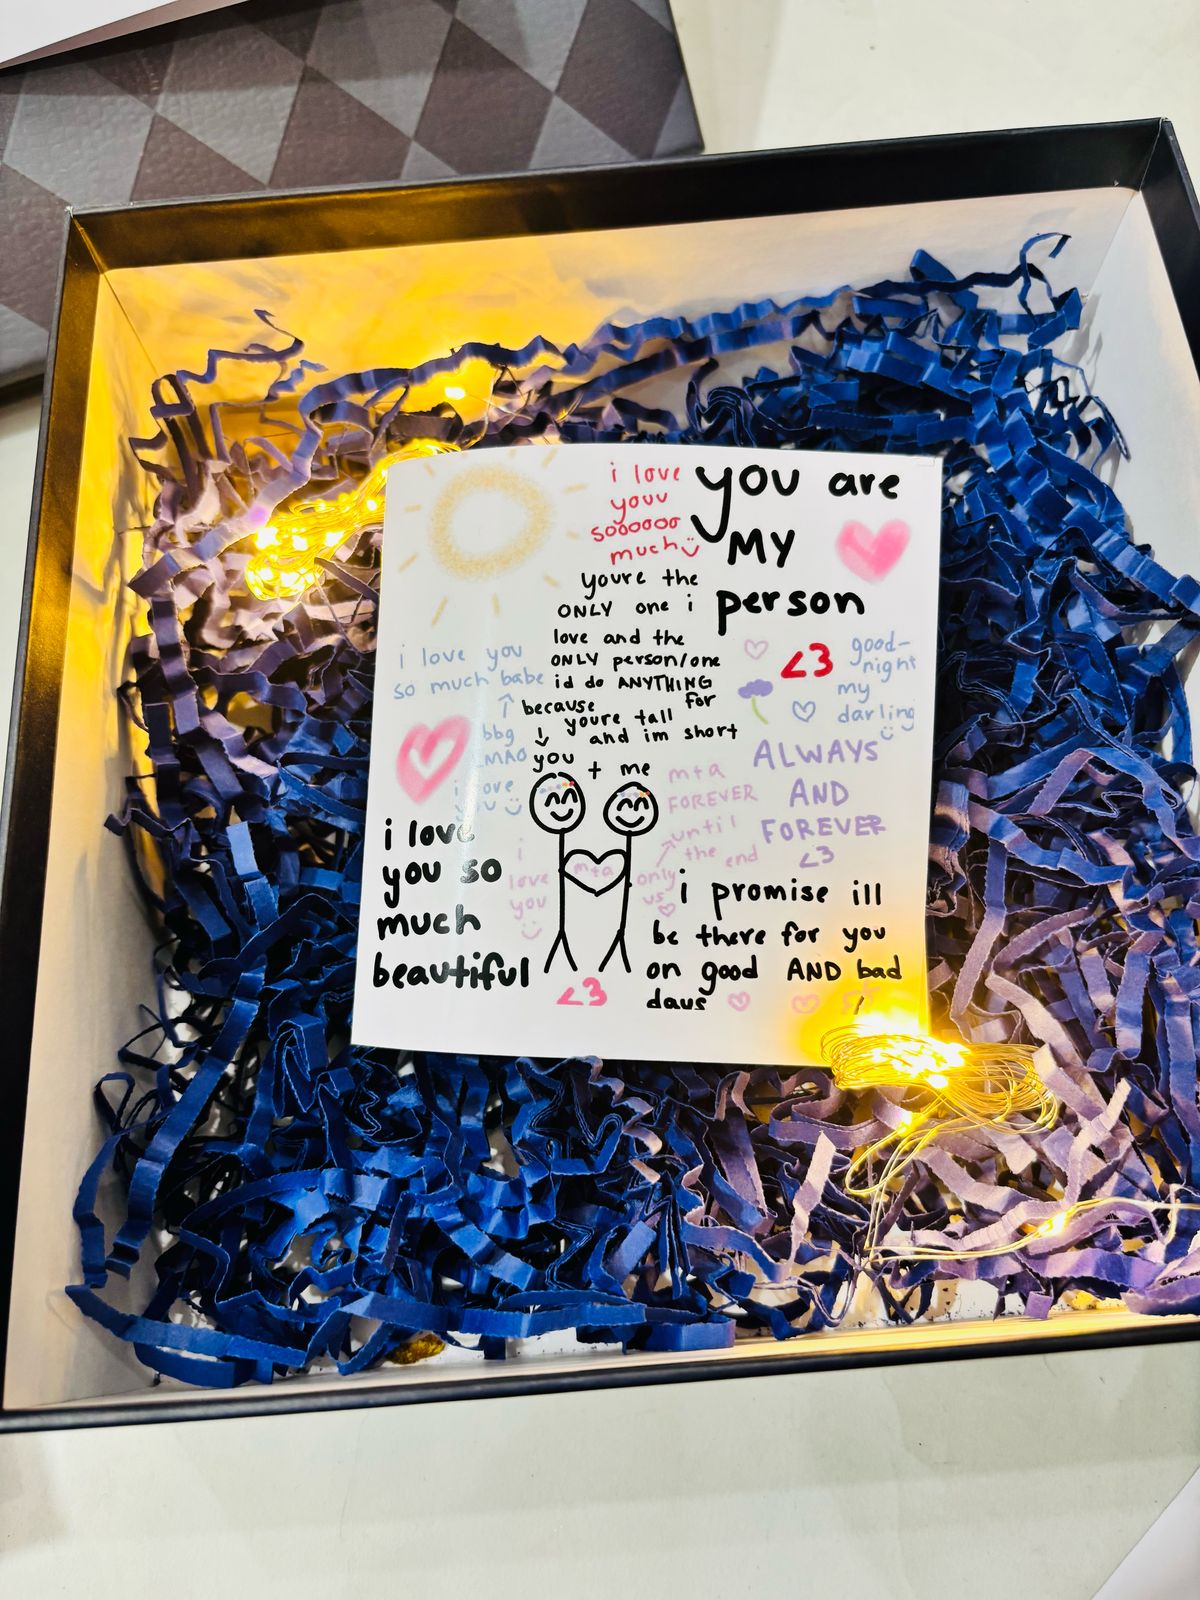 i love
youu
sooooooo
much
you are
MY
person
youre the
ONLY one i
love and the
ONLY person/one
id do ANYTHING
for
because
youre tall
and im short
i love you
so much babe
bbg
LMAO
i love
you
<3
good-
night
my
darling
ALWAYS
AND
FOREVER
<3
you + me
mta
FOREVER
until
the end
only
us
mta
i
love
you
i love
you so
much
beautiful
<3
i promise ill
be there for you
on good AND bad
days